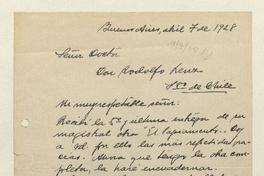 Buenos Aires, abril 7 de 1928
Señor Doctor
Don Rodolfo Lenz
S.º de Chile
Mi muy respetable señor:
Recibí la 5ª y última entrega de su
magistral obra "El Papiamento". Doy
a Vd. por ello las más repetidas gra-
cias. Ahora que tengo la obra com-
pleta, la haré encuadernar.